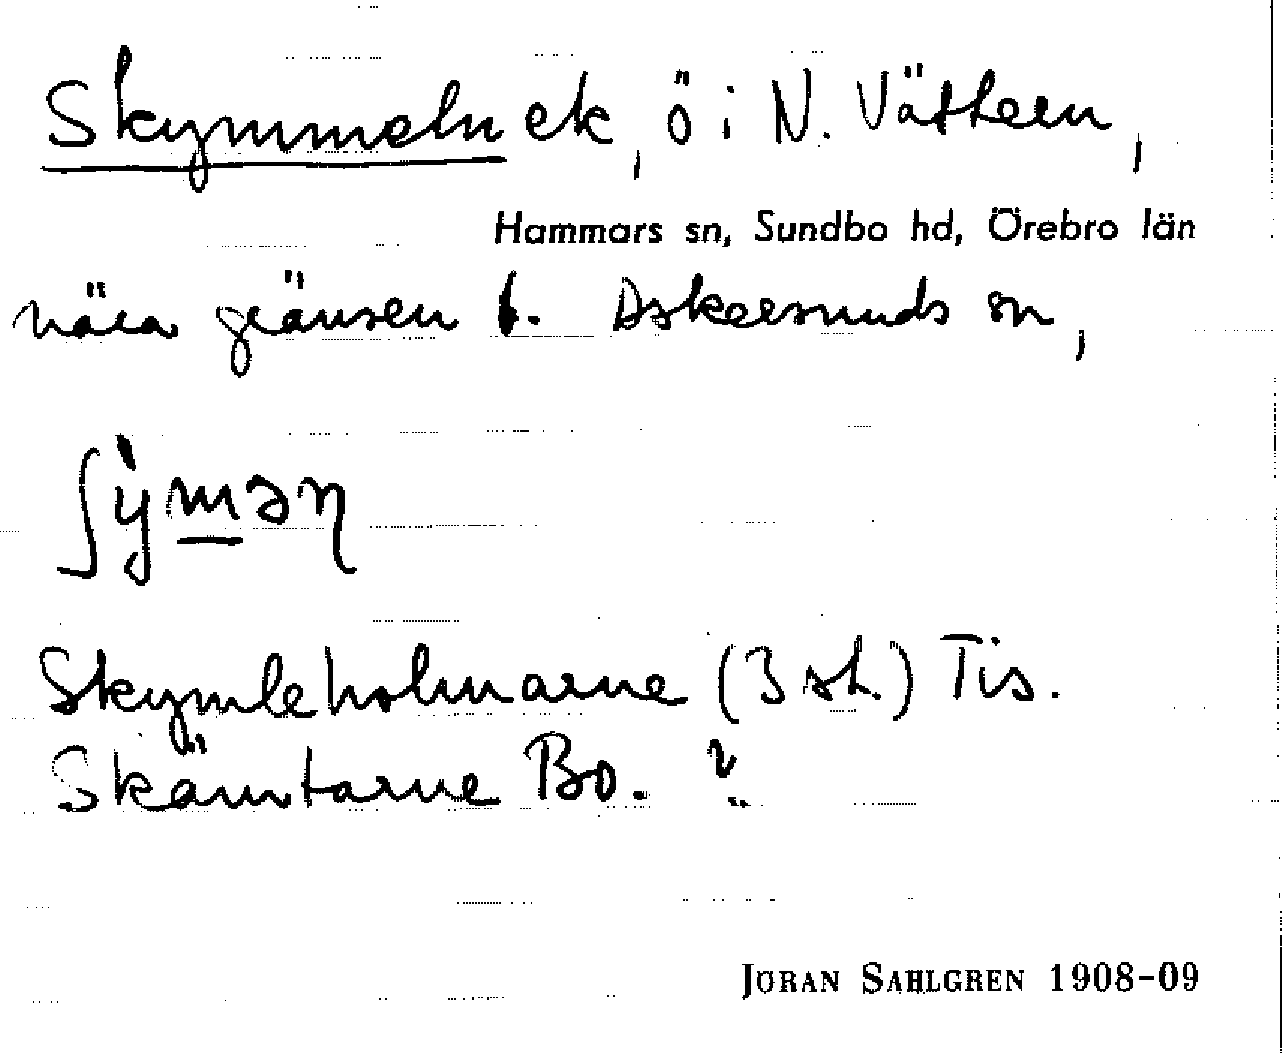 Skymmeln ek, ö i N. Vättern,
Hammars sn, Sundbo hd, Örebro län
nära gränsen t. Askersunds sn,
ʃẏmən
Skymleholmarne (3 st.) Tis.
Skämtarne Bo. ?
JÖRAN SAHLGREN 1908-09